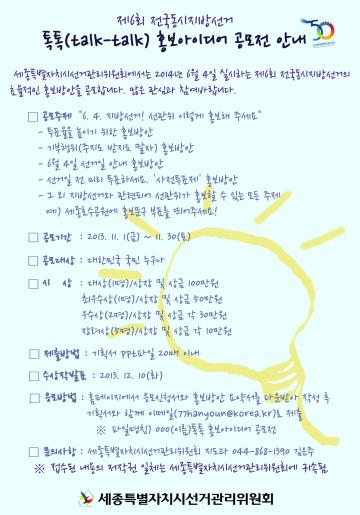 제6회 전국동시지방선거
톡톡(talk-talk) 홍보아이디어 공모전 안내
세종특별자치시선거관리위원회에서는 2014년 6월 4일 실시하는 제6회 전국동시지방선거의
효율적인 홍보방안을 공모합니다. 많은 관심과 참여바랍니다.
□ 공모주제 "6. 4. 지방선거! 선관위 이렇게 홍보해 주세요"
- 투표율을 높이기 위한 홍보방안
- 기부행위(주지도 받지도 말자) 홍보방안
- 6월 4일 선거일 안내 홍보방안
- 선거일 전 미리 투표하세요. '사전투표제' 홍보방안
- 그 외 지방선거와 관련되어 선관위가 홍보할 수 있는 모든 주제
예) 세종호수공원에 홍보문구 부표를 띄어주세요!
□ 공모기간 : 2013. 11. 1(금) ~ 11. 30(토)
□ 공모대상 : 대한민국 국민 누구나
□ 시 상 : 대상(1명)/상장 및 상금 100만원
최우수상(1명)/상장 및 상금 50만원
우수상(2명)/상장 및 상금 각 30만원
장려상(5명)/상장 및 상금 각 10만원
□ 제출방법 : 기획서 PPT파일 20매 이내
□ 수상작발표 : 2013. 12. 10(화)
□ 응모방법 : 홈페이지에서 응모신청서와 홍보방안 요약서를 다운받아 작성 후
기획서와 함께 이메일(77hanyoun@korea.kr)로 제출
※ 파일명칭) 000(이름)톡톡 홍보아이디어 공모전
□ 문의사항 : 세종특별자치시선거관리위원회 지도과 044-868-1390 김은주
※ 접수된 내용의 저작권 일체는 세종특별자치시선거관리위원회에 귀속됨.
세종특별자치시선거관리위원회